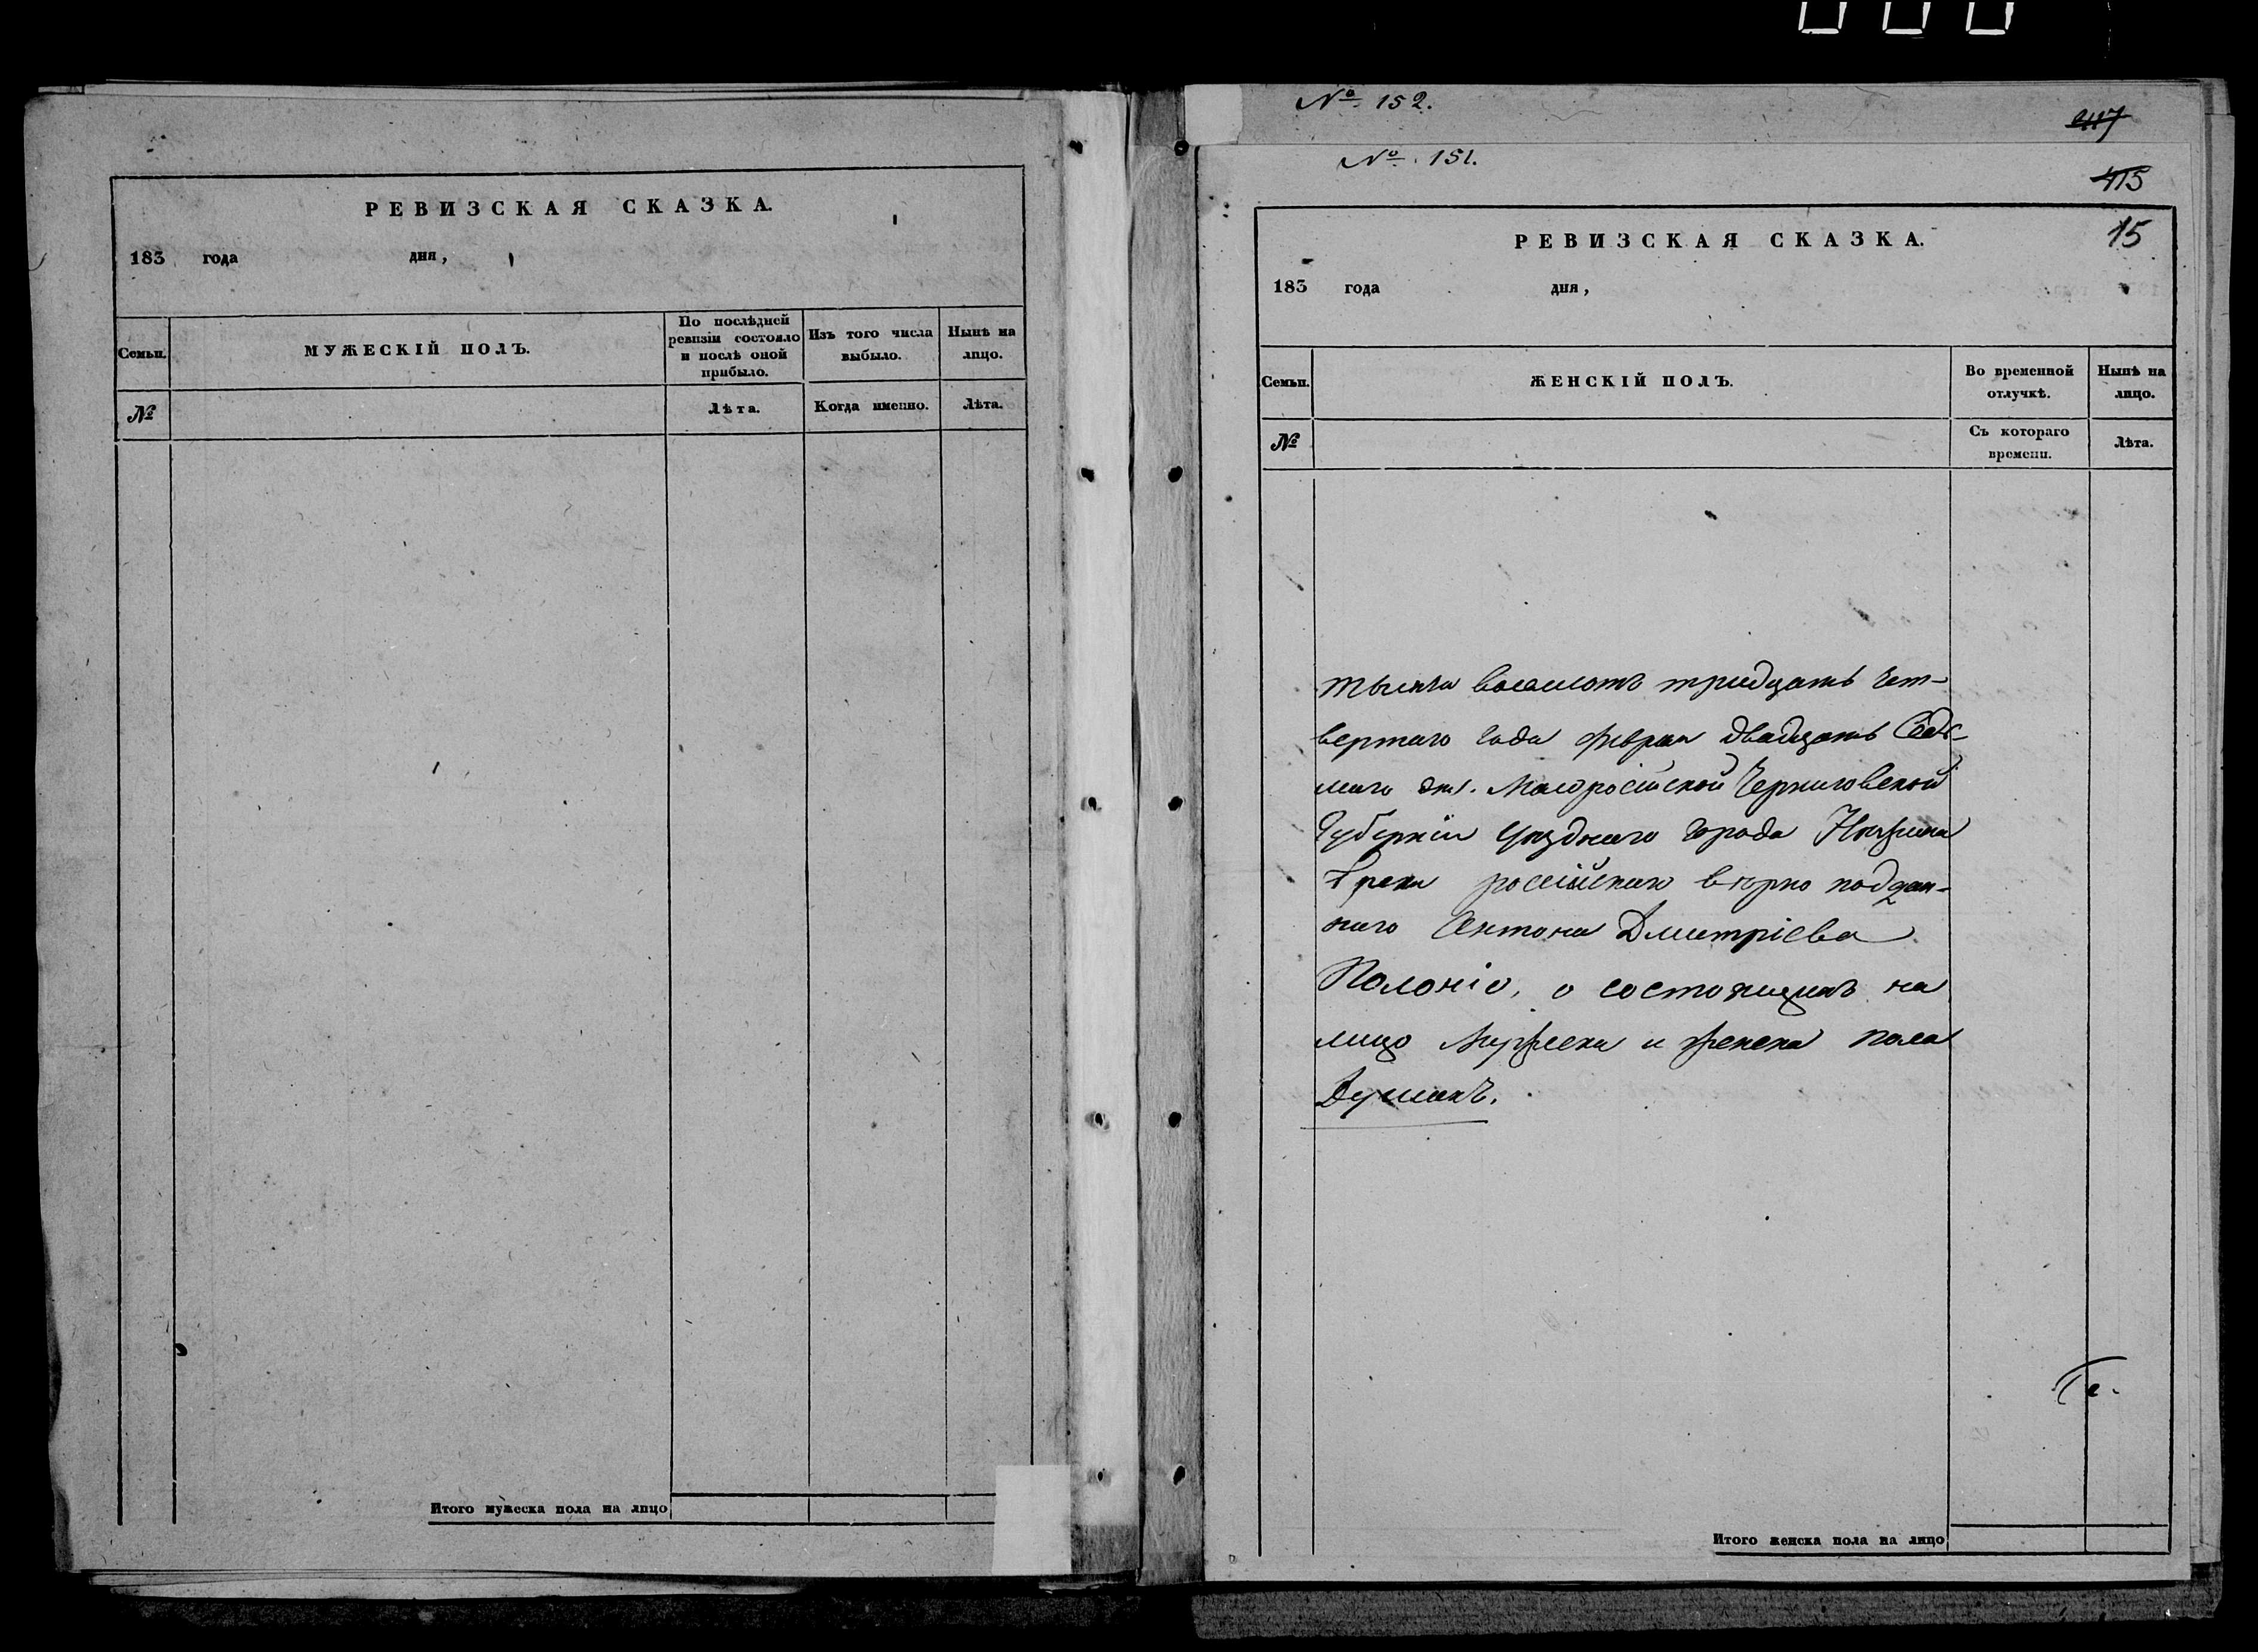 РЕВИЗСКАЯ СКАЗКА.
183 года дня,
Семьи.
МУЖЕСКІЙ ПОЛЪ.
По послѣдней ревизіи состояло и послѣ оной прибыло.
Изъ того числа выбыло.
Нынѣ на лицо.
№
Лѣта.
Когда именно.
Лѣта.
Итого мужеска пола на лицо
№ 152.
417
№ 151.
415
15
РЕВИЗСКАЯ СКАЗКА.
183 года дня,
Семьи.
ЖЕНСКІЙ ПОЛЪ.
Во временной отлучкѣ.
Нынѣ на лицо.
№
Съ котораго времени.
Лѣта.
тысяча восемсотъ тридцать чет-
вертаго года февраля двадцать Седь-
маго дня. Малоросійской Черниговской
Губерніи Уѣзднаго города Нѣжина
Грека россійскаго вѣрно поддан-
наго Антона Дмитріева
Полоніо, о состоящихъ на
лицо мужеска и женска пола
Душахъ.
Итого женска пола на лицо